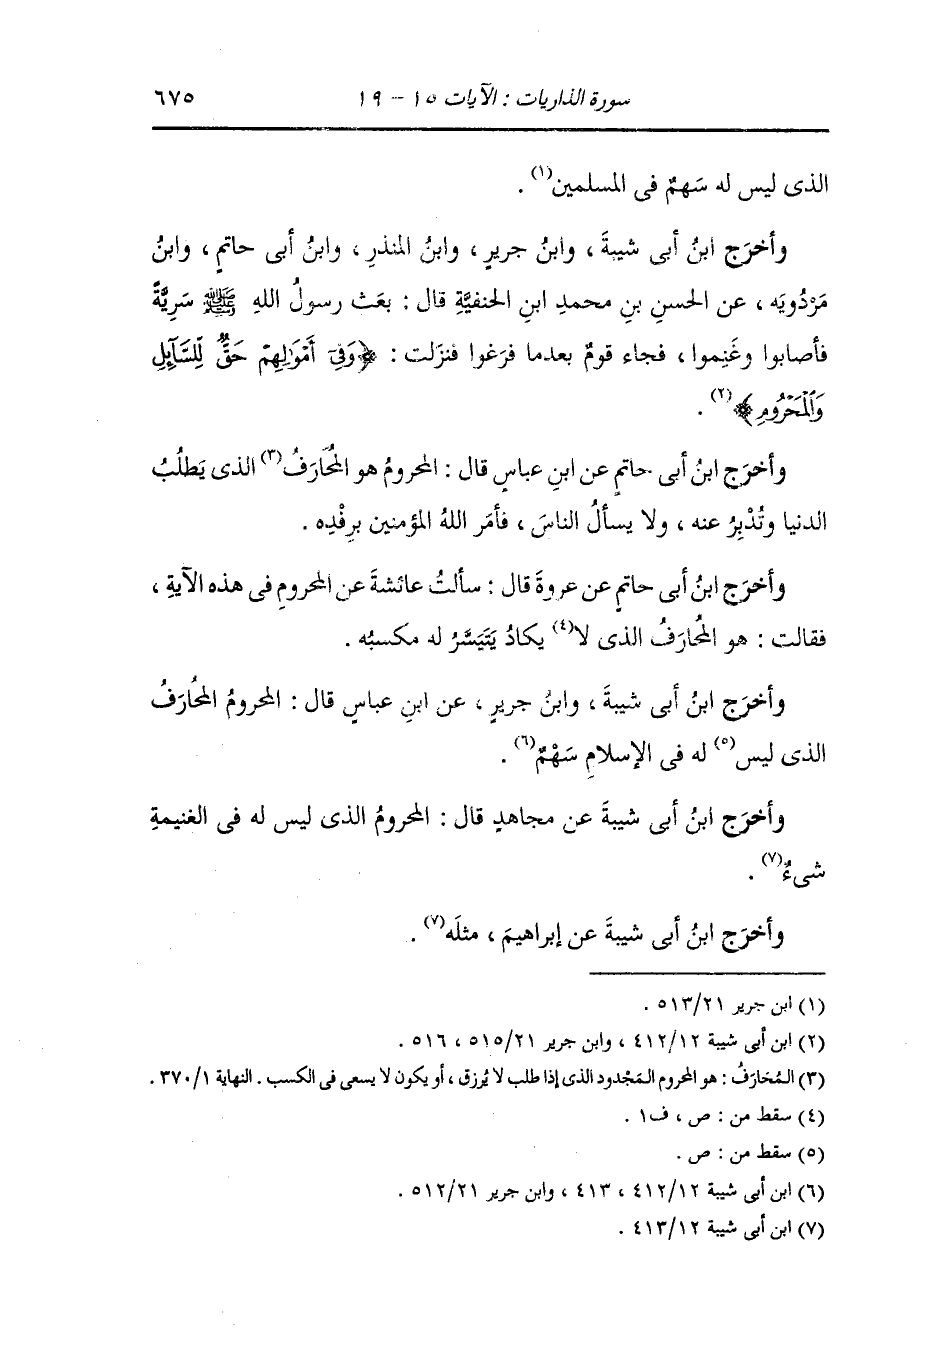 سورة الذاريات : الآيات ١٥ - ١٩ ٦٧٥
الذى ليس له سَهمٌ فى المسلمين(١) .
وأخرَج ابنُ أبى شيبةَ ، وابنُ جريرٍ ، وابنُ المنذرِ ، وابنُ أبى حاتمٍ ، وابنُ
مَرْدُويَه ، عن الحسنِ بنِ محمدِ ابنِ الحنفيَّةِ قال : بعَث رسولُ اللهِ ﷺ سَرِيَّةً
فأصابوا وغَنِموا ، فجاء قومٌ بعدما فرَغوا فنزَلت : ﴿وَفِىٓ أَمْوَٰلِهِمْ حَقٌّ لِّلسَّآئِلِ
وَٱلْمَحْرُومِ﴾(٢) .
وأخرَج ابنُ أبى حاتمٍ عن ابنِ عباسٍ قال : المحرومُ هو المُحَارَفُ(٣) الذى يَطلُبُ
الدنيا وتُدْبِرُ عنه ، ولا يسألُ الناسَ ، فأمَر اللهُ المؤمنين برِفْدِه .
وأخرَج ابنُ أبى حاتمٍ عن عروةَ قال : سألتُ عائشةَ عن المحرومِ فى هذه الآيةِ ،
فقالت : هو المُحارَفُ الذى لا(٤) يكادُ يَتَيَسَّرُ له مكسبُه .
وأخرَج ابنُ أبى شيبةَ ، وابنُ جريرٍ ، عن ابنِ عباسٍ قال : المحرومُ المحُارَفُ
الذى ليس(٥) له فى الإسلامِ سَهْمٌ(٦) .
وأخرَج ابنُ أبى شيبةَ عن مجاهدٍ قال : المحرومُ الذى ليس له فى الغنيمةِ
شىءٌ(٧) .
وأخرَج ابنُ أبى شيبةَ عن إبراهيمَ ، مثلَه(٧) .
(١) ابن جرير ٥١٣/٢١ .
(٢) ابن أبى شيبة ٤١٢/١٢ ، وابن جرير ٥١٥/٢١ ، ٥١٦ .
(٣) المُحَارَفُ : هو المحروم المَجْدود الذى إذا طلب لا يُرزق ، أو يكون لا يسعى فى الكسب . النهاية ٣٧٠/١ .
(٤) سقط من : ص ، ف١ .
(٥) سقط من : ص .
(٦) ابن أبى شيبة ٤١٢/١٢ ، ٤١٣ ، وابن جرير ٥١٢/٢١ .
(٧) ابن أبى شيبة ٤١٣/١٢ .